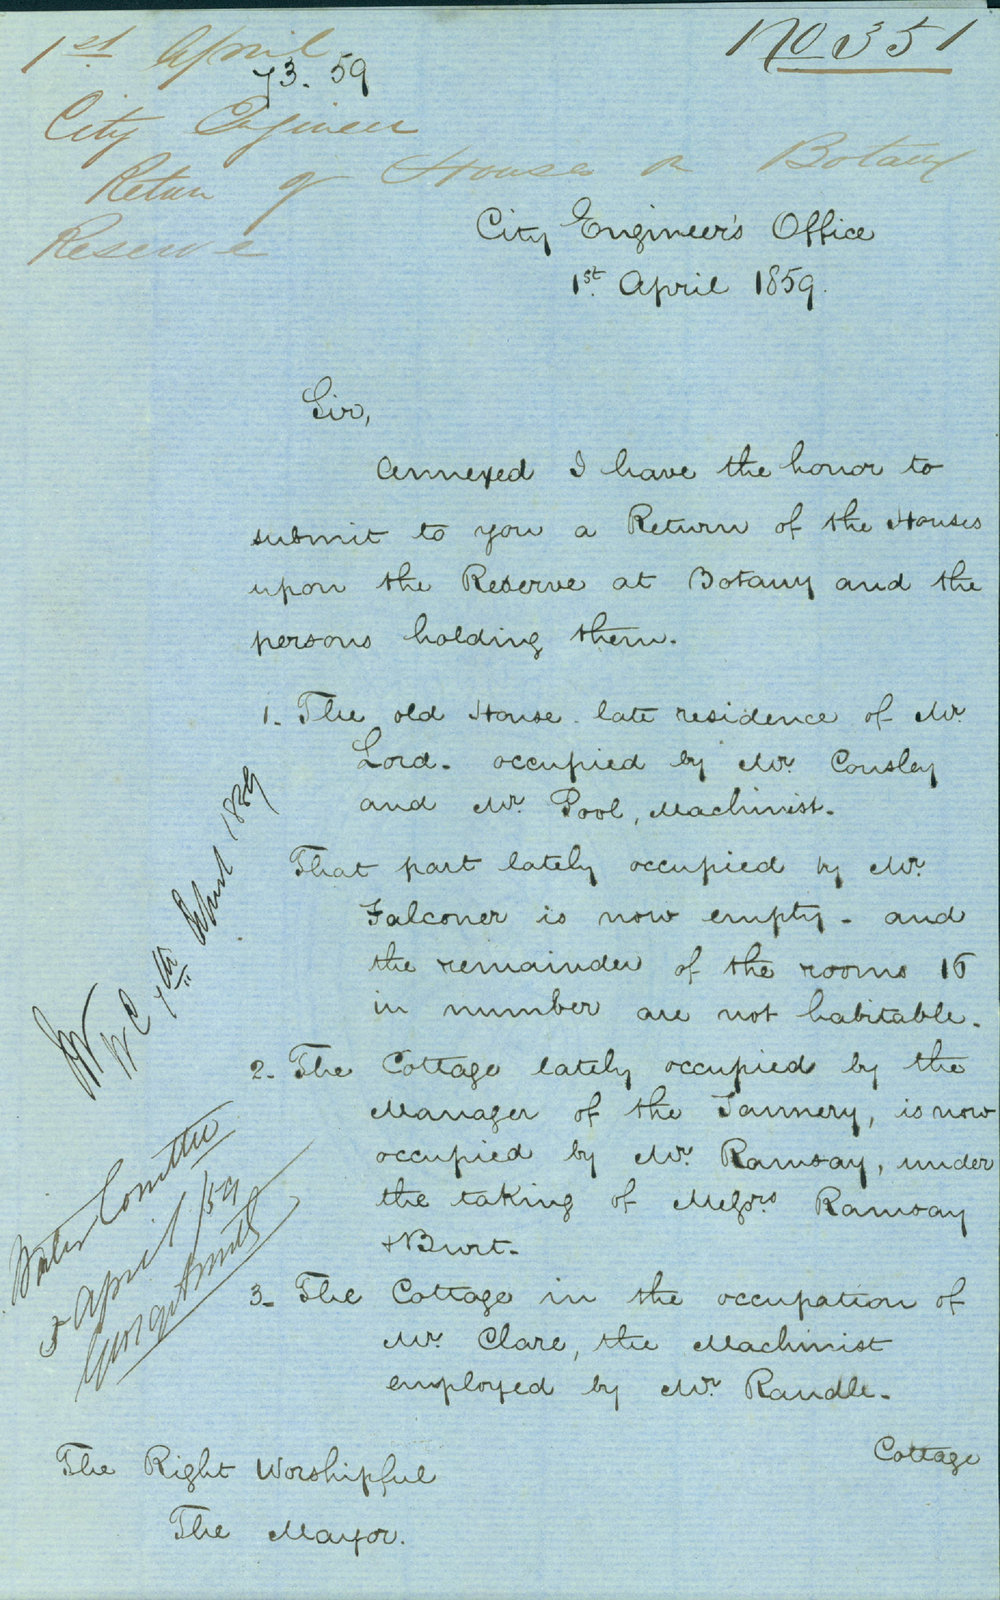 No 351
1st April
73. 59
City Engineer
Return of Houses on Botany
Reserve
City Engineer's Office
1st. April 1859.
Sir,
Annexed I have the honor to
submit to you a Return of the Houses
upon the Reserve at Botany and the
persons holding them.
1. The old House late residence of Mr.
Lord. occupied by Mr. Consley
and Mr. Pool, Machinist.
That part lately occupied by Mr.
Falconer is now empty - and
the remainder of the rooms 16
in number are not habitable.
2. The Cottage lately occupied by the
Manager of the Tannery, is now
occupied by Mr. Ramsay, under
the taking of Messrs Ramsay
+ Burt.
3. The Cottage in the occupation of
Mr. Clare, the Machinist
employed by Mr. Randle.
Cottage
The Right Worshipful
The Mayor.
WC 7th April 1859
Water Comittee
5 April /59
George Smith